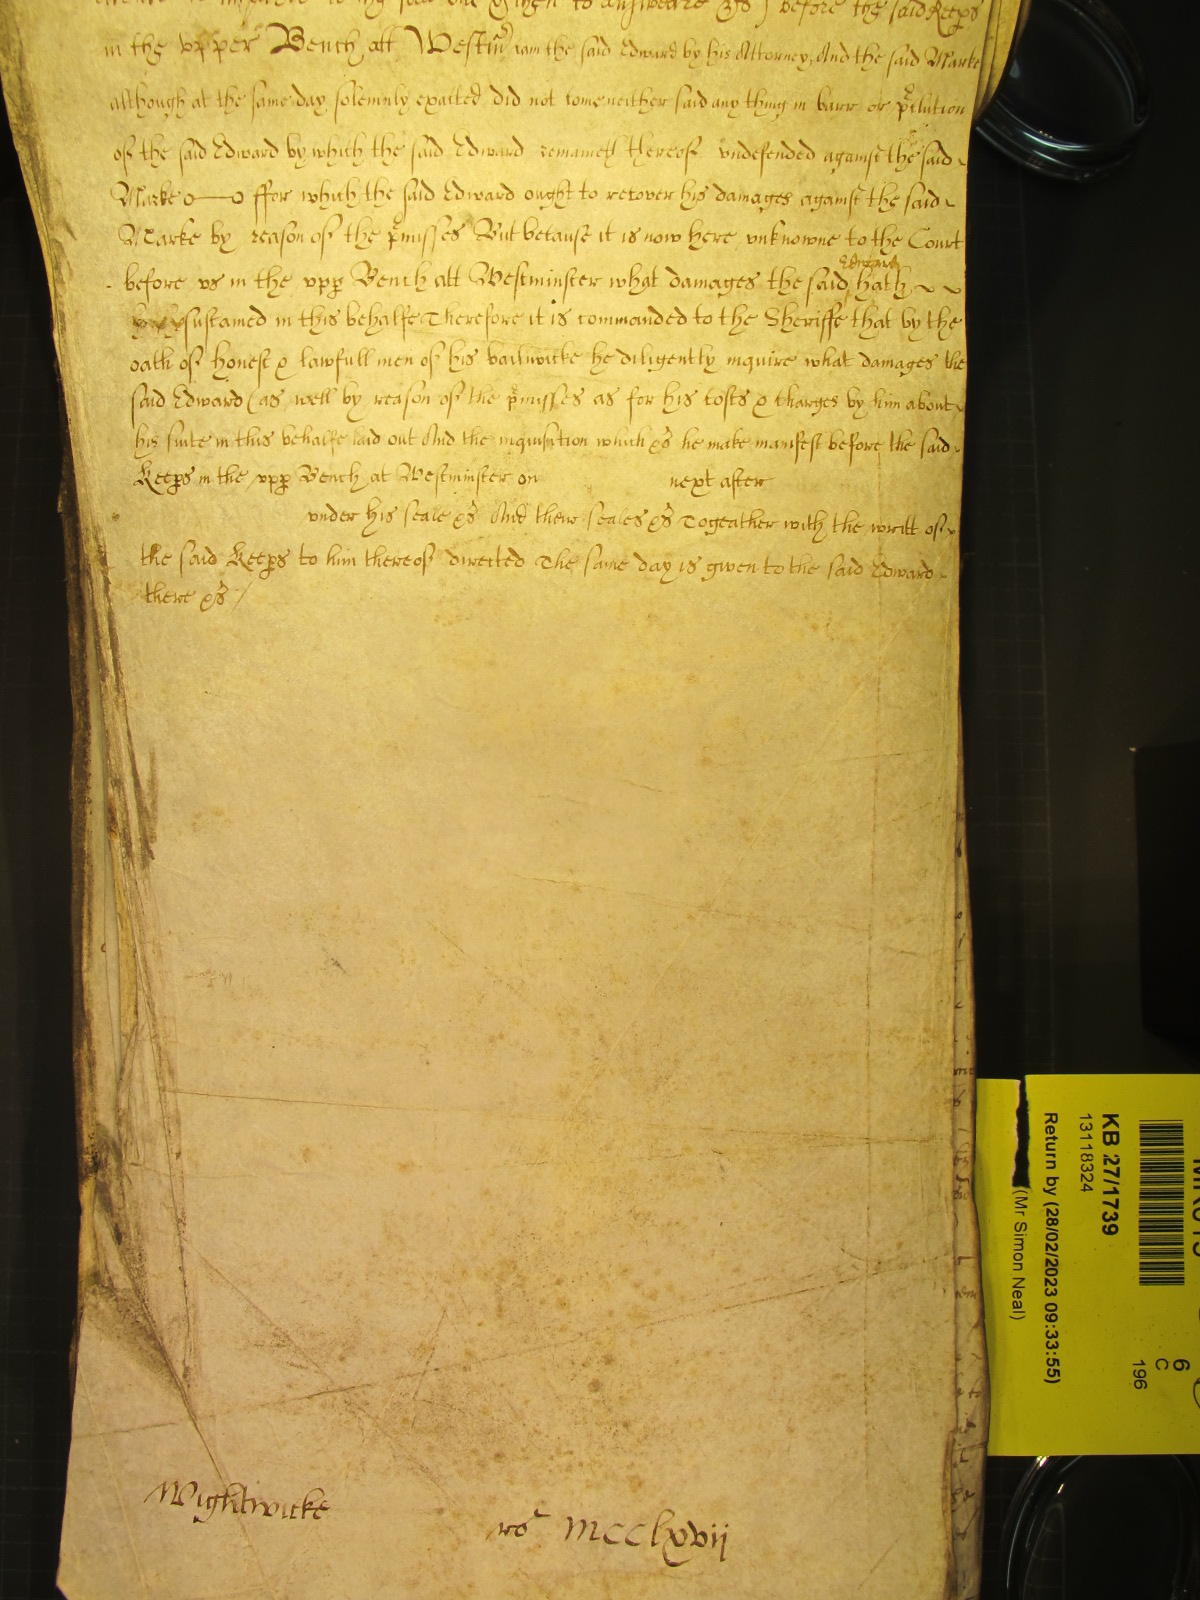 in the vpper Bench att Westmr cam the said Edward by his Attorney, And the said Marke
although at the same day solemnly exacted did not come neither said any thing in barr or p̄clution
of the said Edward by which the said Edward remaineth thereof vndefended against the said
Marke ffor which the said Edward ought to recover his damages against the said
Marke by reason of the p̄misses But because it is now here vnknowne to the Court
before vs in the vpp Bench att Westminster what damages the said Edward hath
sustained in this behalfe Therefore it is commanded to the Sheriffe that by the
oath of honest & lawfull men of his bailiwicke he diligently inquire what damages the
said Edward (as well by reason of the p̄misses as for his costs & charges by him about
his suite in this behalfe laid out And the inquisition which &c he make manifest before the said
Keeps in the vpp Bench at Westminster on next after
vnder his seale &c And their seales &c Togeather with the writt of
the said Keeps to him thereof directed The same day is given to the said Edward
there &c /
Wightwicke
ro MCClxvii
KB 27/1739
13118324
Return by (28/02/2023 09:33:55)
(Mr Simon Neal)
6
C
196